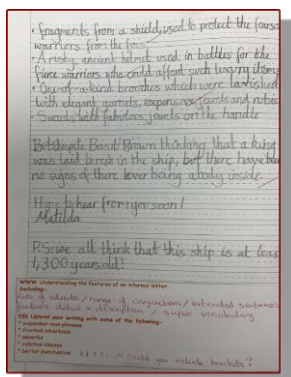 • fragments from a shield, used to protect the
warriors from the foes
• A rusty, ancient helmet used in battles for the
fierce warriors who could afford such luxury items
• One-of-a-kind brooches which were
with elegant garnets, expensive jewels and rubies
• Swords with fabulous jewels on the handle
But despite Basil Brown thinking that a king
was laid to rest in the ship, but there have been
no signs of there being a body inside
Hope to hear from you soon!
Matilda
P.S. we all think that this ship is at least
1,300 years old!
WWW Understanding the features of an informal letter.
Including:-
lots of adverbs / range of conjunctions / extended sentences
detail + description / super vocabulary
EBI Uplevel your writing with some of the following:-
* expanded noun phrases
* fronted adverbials
* adverbs
* relative clauses
* better punctuation - could you include brackets?